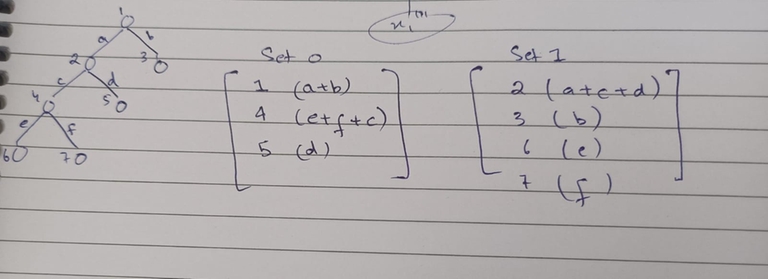 1
a b
2 3
c d
4 5
e f
6 7
Set 0
1 (a+b)
4 (e+f+c)
5 (d)
Set 1
2 (a+c+d)
3 (b)
6 (e)
7 (f)